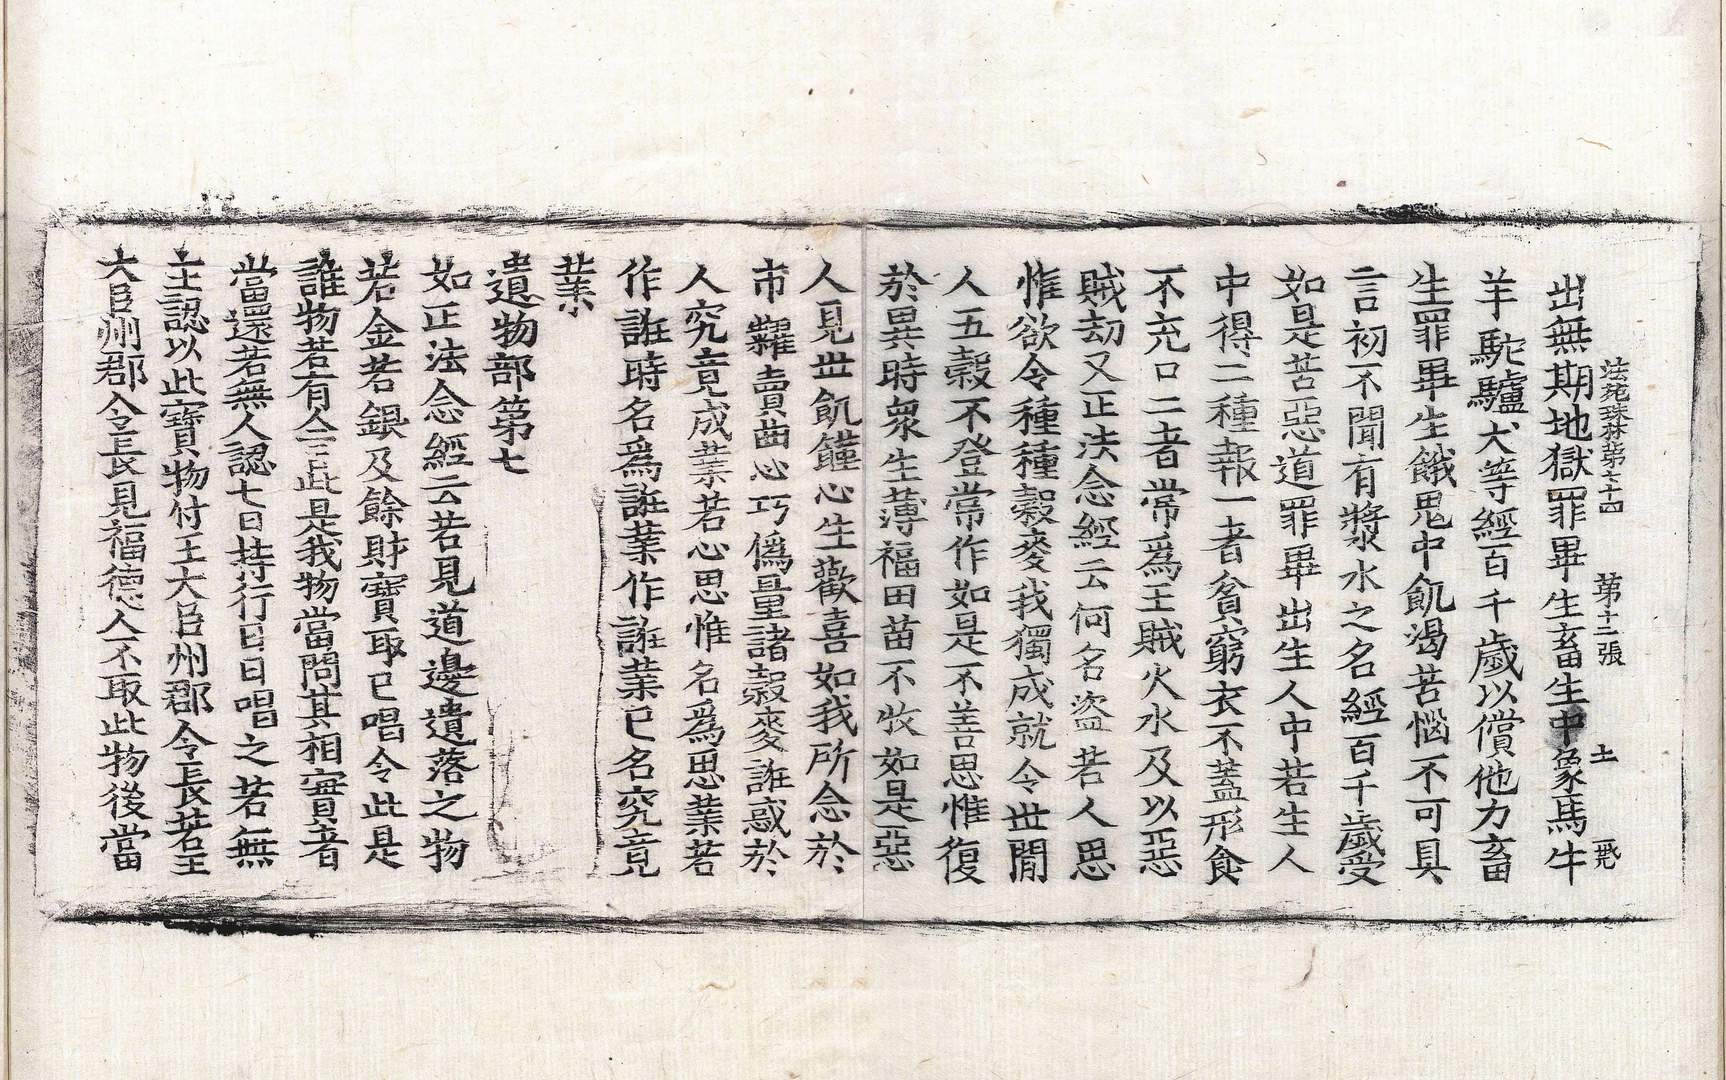 法苑珠林第六十四 第十二張 土 戒
出無期地獄罪畢生畜生中象馬牛
羊駝驢犬等經百千歲以償他力畜
生罪畢生餓鬼中飢渴苦惱不可具
言初不聞有漿水之名經百千歲受
如是苦惡道罪畢出生人中若生人
中得二種報一者貧窮衣不蓋形食
不充口二者常爲王賊火水及以惡
賊劫又正法念經云何名盜若人思
惟欲令種種穀麥我獨成就令世閒
人五穀不登常作如是不善思惟復
於異時衆生薄福田苗不收如是惡
人見世飢饉心生歡喜如我所念於
市糶賣齒心巧僞量諸穀麥誑惑於
人究竟成業若心思惟名爲思業若
作誑時名爲誑業作誑業已名究竟
業
遺物部第七
如正法念經云若見道邊遺落之物
若金若銀及餘財寶取已唱令此是
誰物若有人言此是我物當問其相實者
當還若無人認七日持行日日唱之若無
主認以此寶物付王大臣州郡令長若王
大臣州郡令長見福德人不取此物後當